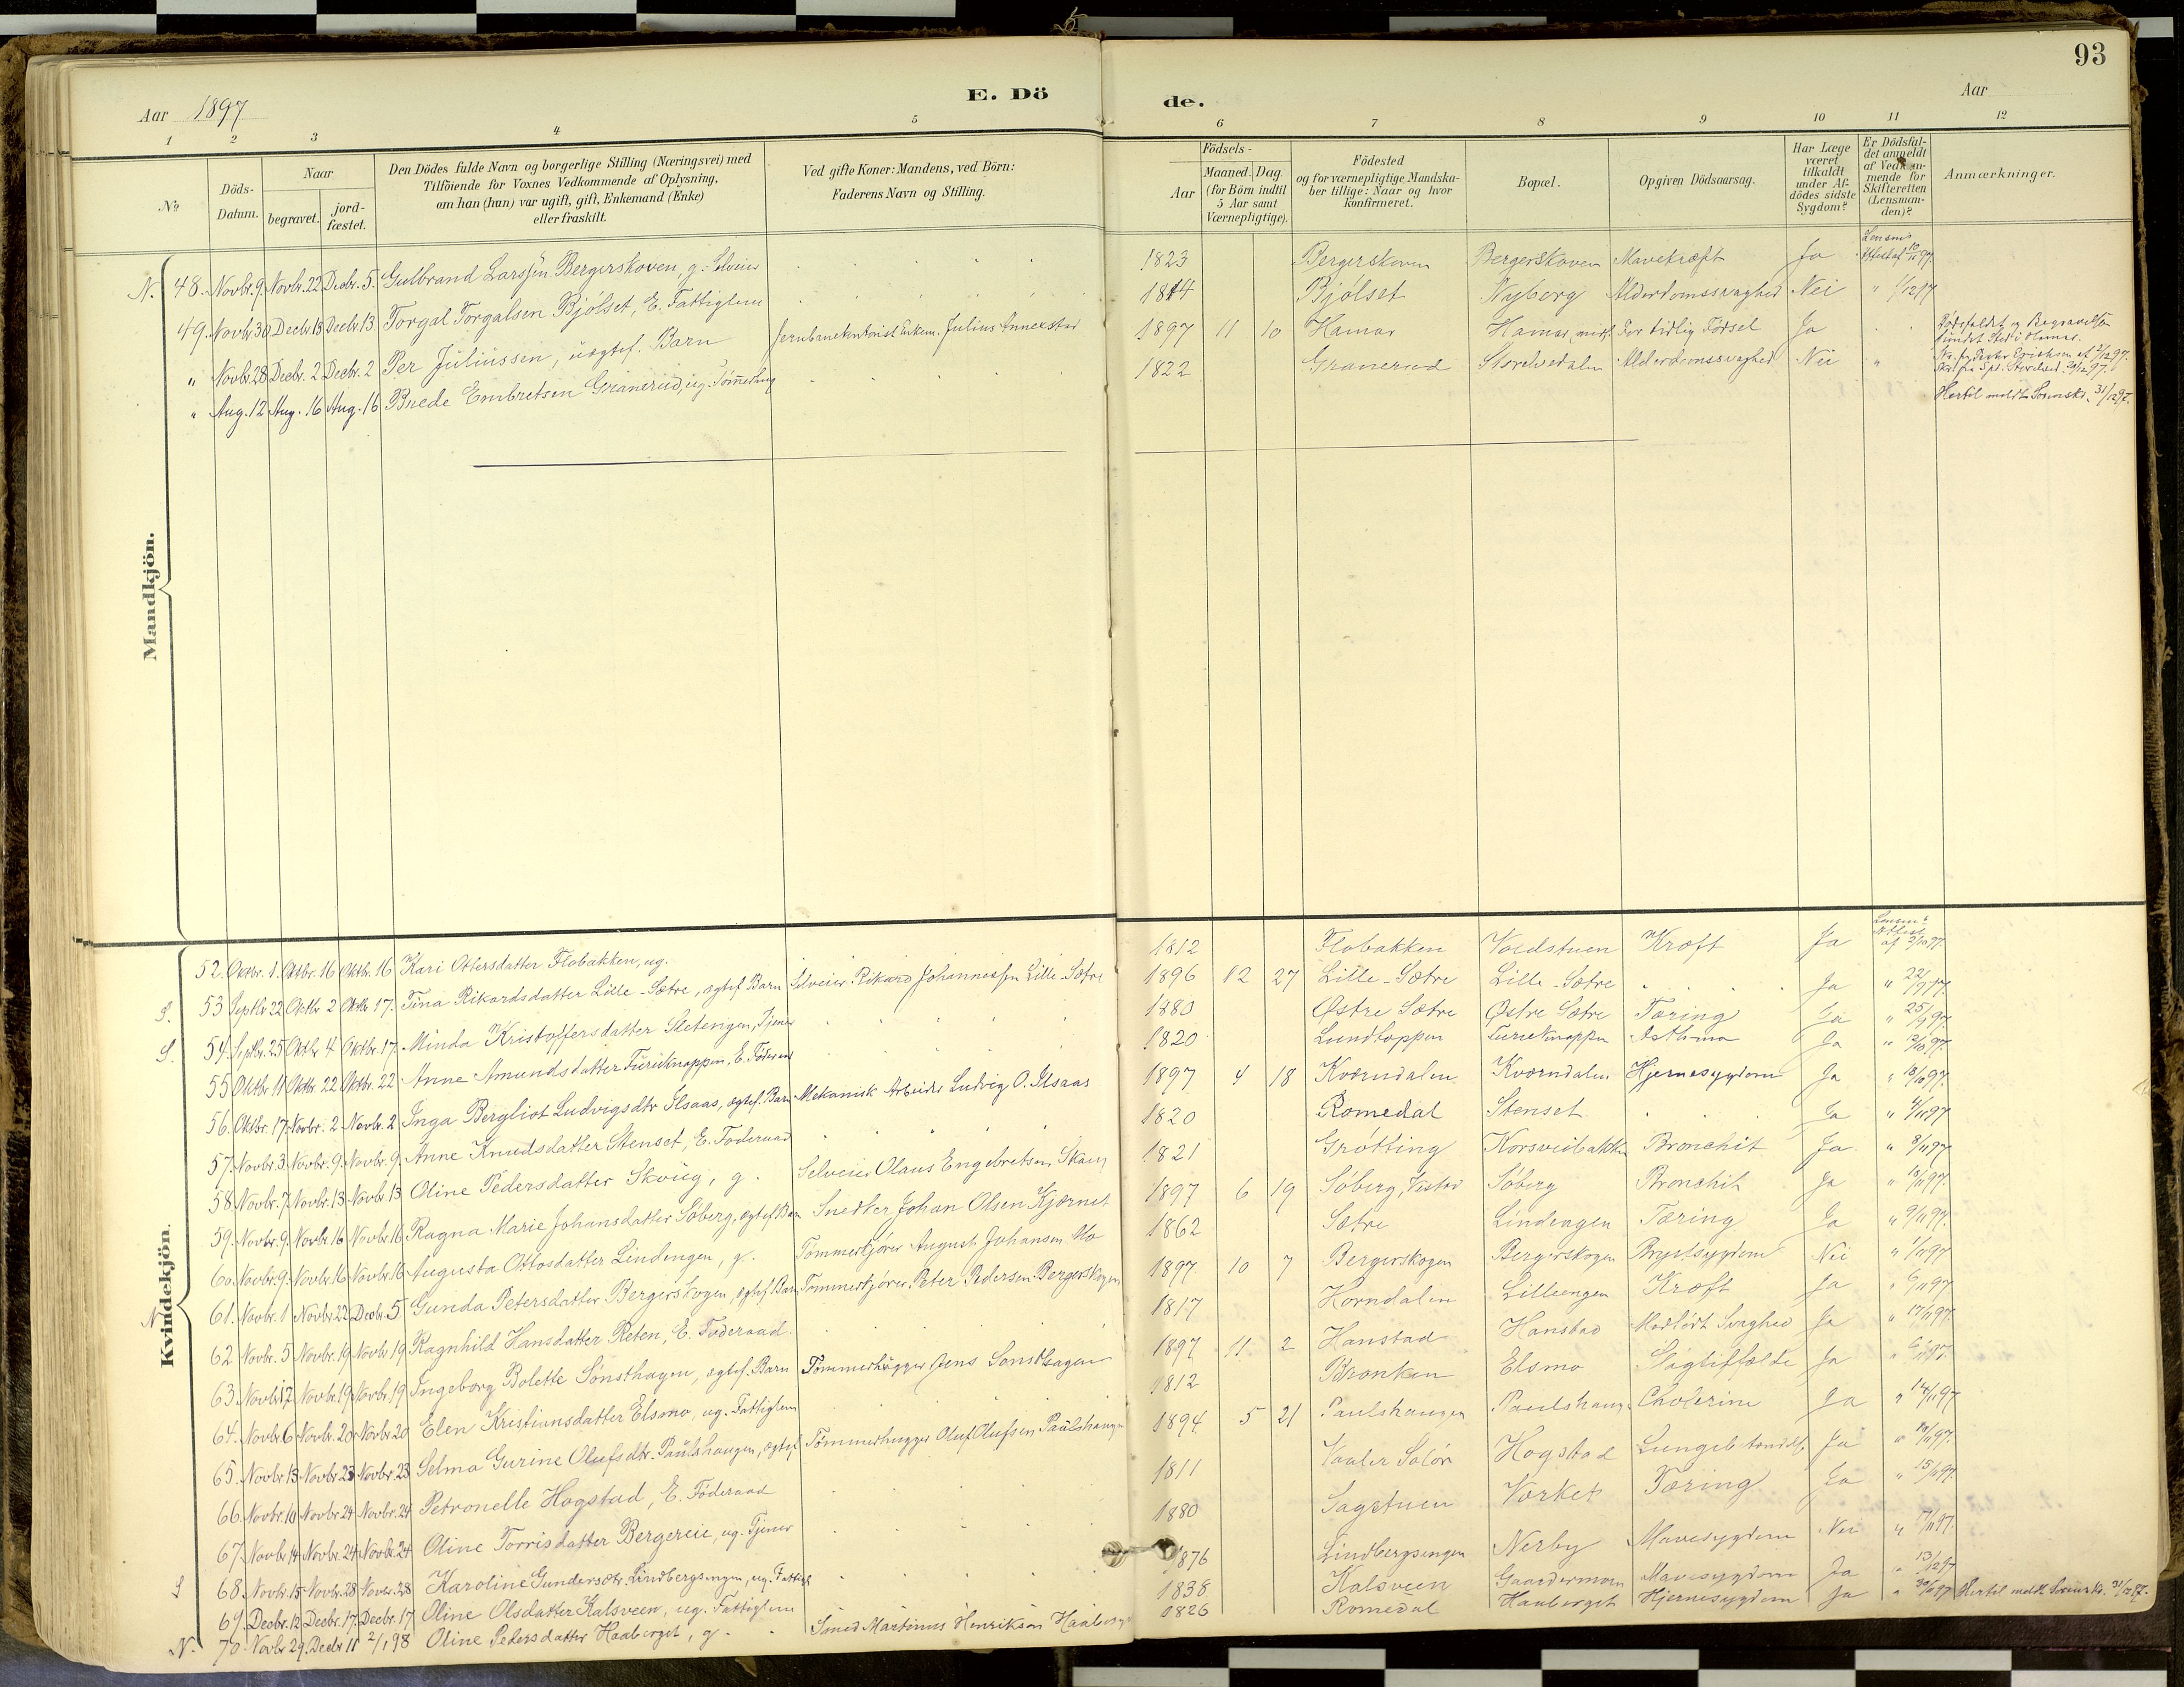 93
Aar 1897
E. Dö
de.
Aar
1 2 3 4 5 6 7 8 9 10 11 12
No
Döds-Datum.
Naar
begravet.
jord-fæstet.
Den Dödes fulde Navn og borgerlige Stilling (Næringsvei) med
Tilföiende for Voxnes Vedkommende af Oplysning,
om han (hun) var ugift, gift, Enkemand (Enke)
eller fraskilt.
Ved gifte Koner: Mandens, ved Börn:
Faderens Navn og Stilling.
Födsels-
Aar
Maaned. Dag.
(for Börn indtil
5 Aar samt
Værnepligtige).
Födested
og for værnepligtige Mandska-
ber tillige: Naar og hvor
konfirmeret.
Bopæl.
Opgiven Dödsaarsag.
Har Læge
været
tilkaldt
under Af-
dödes sidste
Sygdom?
Er Dödsfal-
det anmeldt
af Vedkom-
mende for
Skifteretten
(Lensman-
den)?
Anmærkninger.
Mandkjön.
N. 48. Novbr. 9. Novbr. 22 Decbr. 5. Gulbrand Larssen Bergerskoven, g. Selveier 1823 Bergerskoven Bergerskoven Mavekræft Ja Lensm. Attest af 10/11 97.
49. Novbr. 30 Decbr. 13 Decbr. 13. Torgal Torgalsen Bjölset, E. Fattiglem 1814 Bjölset Nyborg Alderdomssvaghed Nei
" Novbr. 28 Decbr. 2 Decbr. 2 Per Juliussen, uægtef. Barn Julius Annexstad 1897 11 10 Hamar Hamar For tidlig Födsel Ja Dödsfaldet og Begravelsen fundet Sted i Hamar.
" Aug. 12 Aug. 16 Aug. 16 Brede Embretsen Granerud, ug. 1822 Granerud Storelvedalen Alderdomssvaghed Nei "
Hertil meldt 31/12 97.
Kvindekjön.
52. Oktbr. 1. Oktbr. 16 Oktbr. 16 Kari Ottersdatter Flobakken, ug. 1812 Flobakken Voldstuen Kræft Ja Lensm. Attest af 2/10 97.
S. 53 Septbr 22 Oktbr 2 Oktbr 17. Tina Rikardsdatter Lille-Sætre, ægtef. Barn Selveier Rikard Johannessen Lille-Sætre 1896 12 27 Lille-Sætre Lille-Sætre Ja " 22/9 97.
S. 54. Septbr. 25 Oktbr 4 Oktbr. 17. Minda Kristoffersdatter Sletengen, Tjener 1880 Østre Sætre Østre Sætre Tæring Ja " 25/9 97.
55 Oktbr 11 Oktbr. 22 Oktbr. 22 Anne Amundsdatter Furuknappen, E. Föderaad 1820 Lundtoppen Furuknappen Asthma Ja " 12/10 97.
56. Oktbr. 17. Novbr. 2. Novbr. 2 Inga Bergliot Ludvigsdtr Ilsaas, ægtef. Barn Mekanisk Arbeider Ludvig O. Ilsaas 1897 4 18 Kværndalen Kværndalen Hjernesygdom Ja " 18/10 97.
57. Novbr. 3. Novbr. 9. Novbr. 9. Anne Knudsdatter Stenset, E. Föderaad 1820 Romedal Stenset Ja " 4/11 97
58. Novbr. 7. Novbr. 13 Novbr. 13 Oline Pedersdatter Skoug, g. Selveier Olaus Engebretsen Skaug 1821 Grötting Korsveibakken Bronchit Ja " 8/11 97
59. Novbr. 9. Novbr. 16 Novbr. 16 Ragna Marie Johansdatter Söberg, ægtef. Barn Snedker Johan Olsen Kjærnet 1897 6 19 Söberg, Vestad Söberg Bronchit Ja " 10/11 97.
60. Novbr. 9. Novbr. 16 Novbr. 16 Augusta Ottosdatter Lindengen, g. Tömmerkjörer August Johansen Mo 1862 Sætre Lindengen Tæring Ja " 9/11 97.
N. 61. Novbr. 1 Novbr. 22 Decbr. 5 Gunda Petersdatter Bergerskogen, ægtef. Barn Tömmerkjörer Peter Pedersen Bergerskogen 1897 10 7 Bergerskogen Bergerskogen Brystsygdom Nei " 1/11 97
62 Novbr. 5 Novbr. 19 Novbr. 19 Ragnhild Hansdatter Reten, E. Föderaad. 1817 Horndalen Lilleengen Kræft Ja " 6/11 97
63. Novbr. 17. Novbr. 19 Novbr. 19 Ingeborg Bolette Sönsthagen, ægtef. Barn Tömmerhugger Jens Sönsthagen 1897 11 2 Hanstad Hanstad Medfödt Svaghed Ja " 17/11 97.
64. Novbr. 6 Novbr. 20 Novbr. 20 Elen Kristiansdatter Elsmo, ug. Fattiglem 1812 Bronken Elsmo Slagtilfælde Ja " 6/11 97.
65. Novbr. 13 Novbr. 23 Novbr. 23 Selma Gurine Olufsdtr. Paulshaugen, ægtef. Tömmerhugger Oluf Olufsen Paulshaugen 1894 5 21 Paulshaugen Paulshaug. Cholerine Ja " 14/11 97
66. Novbr. 10 Novbr. 24 Novbr. 24 Petronelle Hogstad, E. Föderaad 1811 Vaaler Solör Hogstad Lungebetændels. Ja " 10/11 97.
67. Novbr. 14 Novbr. 24 Novbr. 24 Oline Torrisdatter Bergereie, ug. Tjener 1880 Sagstuen Værket Tæring Ja " 15/11 97.
S 68. Novbr. 15 Novbr. 28 Novbr. 28 Karoline Gundersdtr. Lindbergsengen, ug. Fattigl. 1876 Lindbergsengen Nerby Mavesygdom Nei " 17/11 97.
69. Decbr. 12. Decbr. 17. Decbr. 17 Oline Olsdatter Kalsveen, ug. Fattiglem 1838 Kalsveen Gaardermoen Mavesygdom Ja " 13/12 97
N. 70. Novbr 29. Decbr 11 2/1 98 Oline Pedersdatter Haaberget, g. Smed Martinus Henriksen Haaberget 1826 Romedal Haaberget Hjernesygdom Ja " 30/11 97 Hertil meldt 31/12 97.